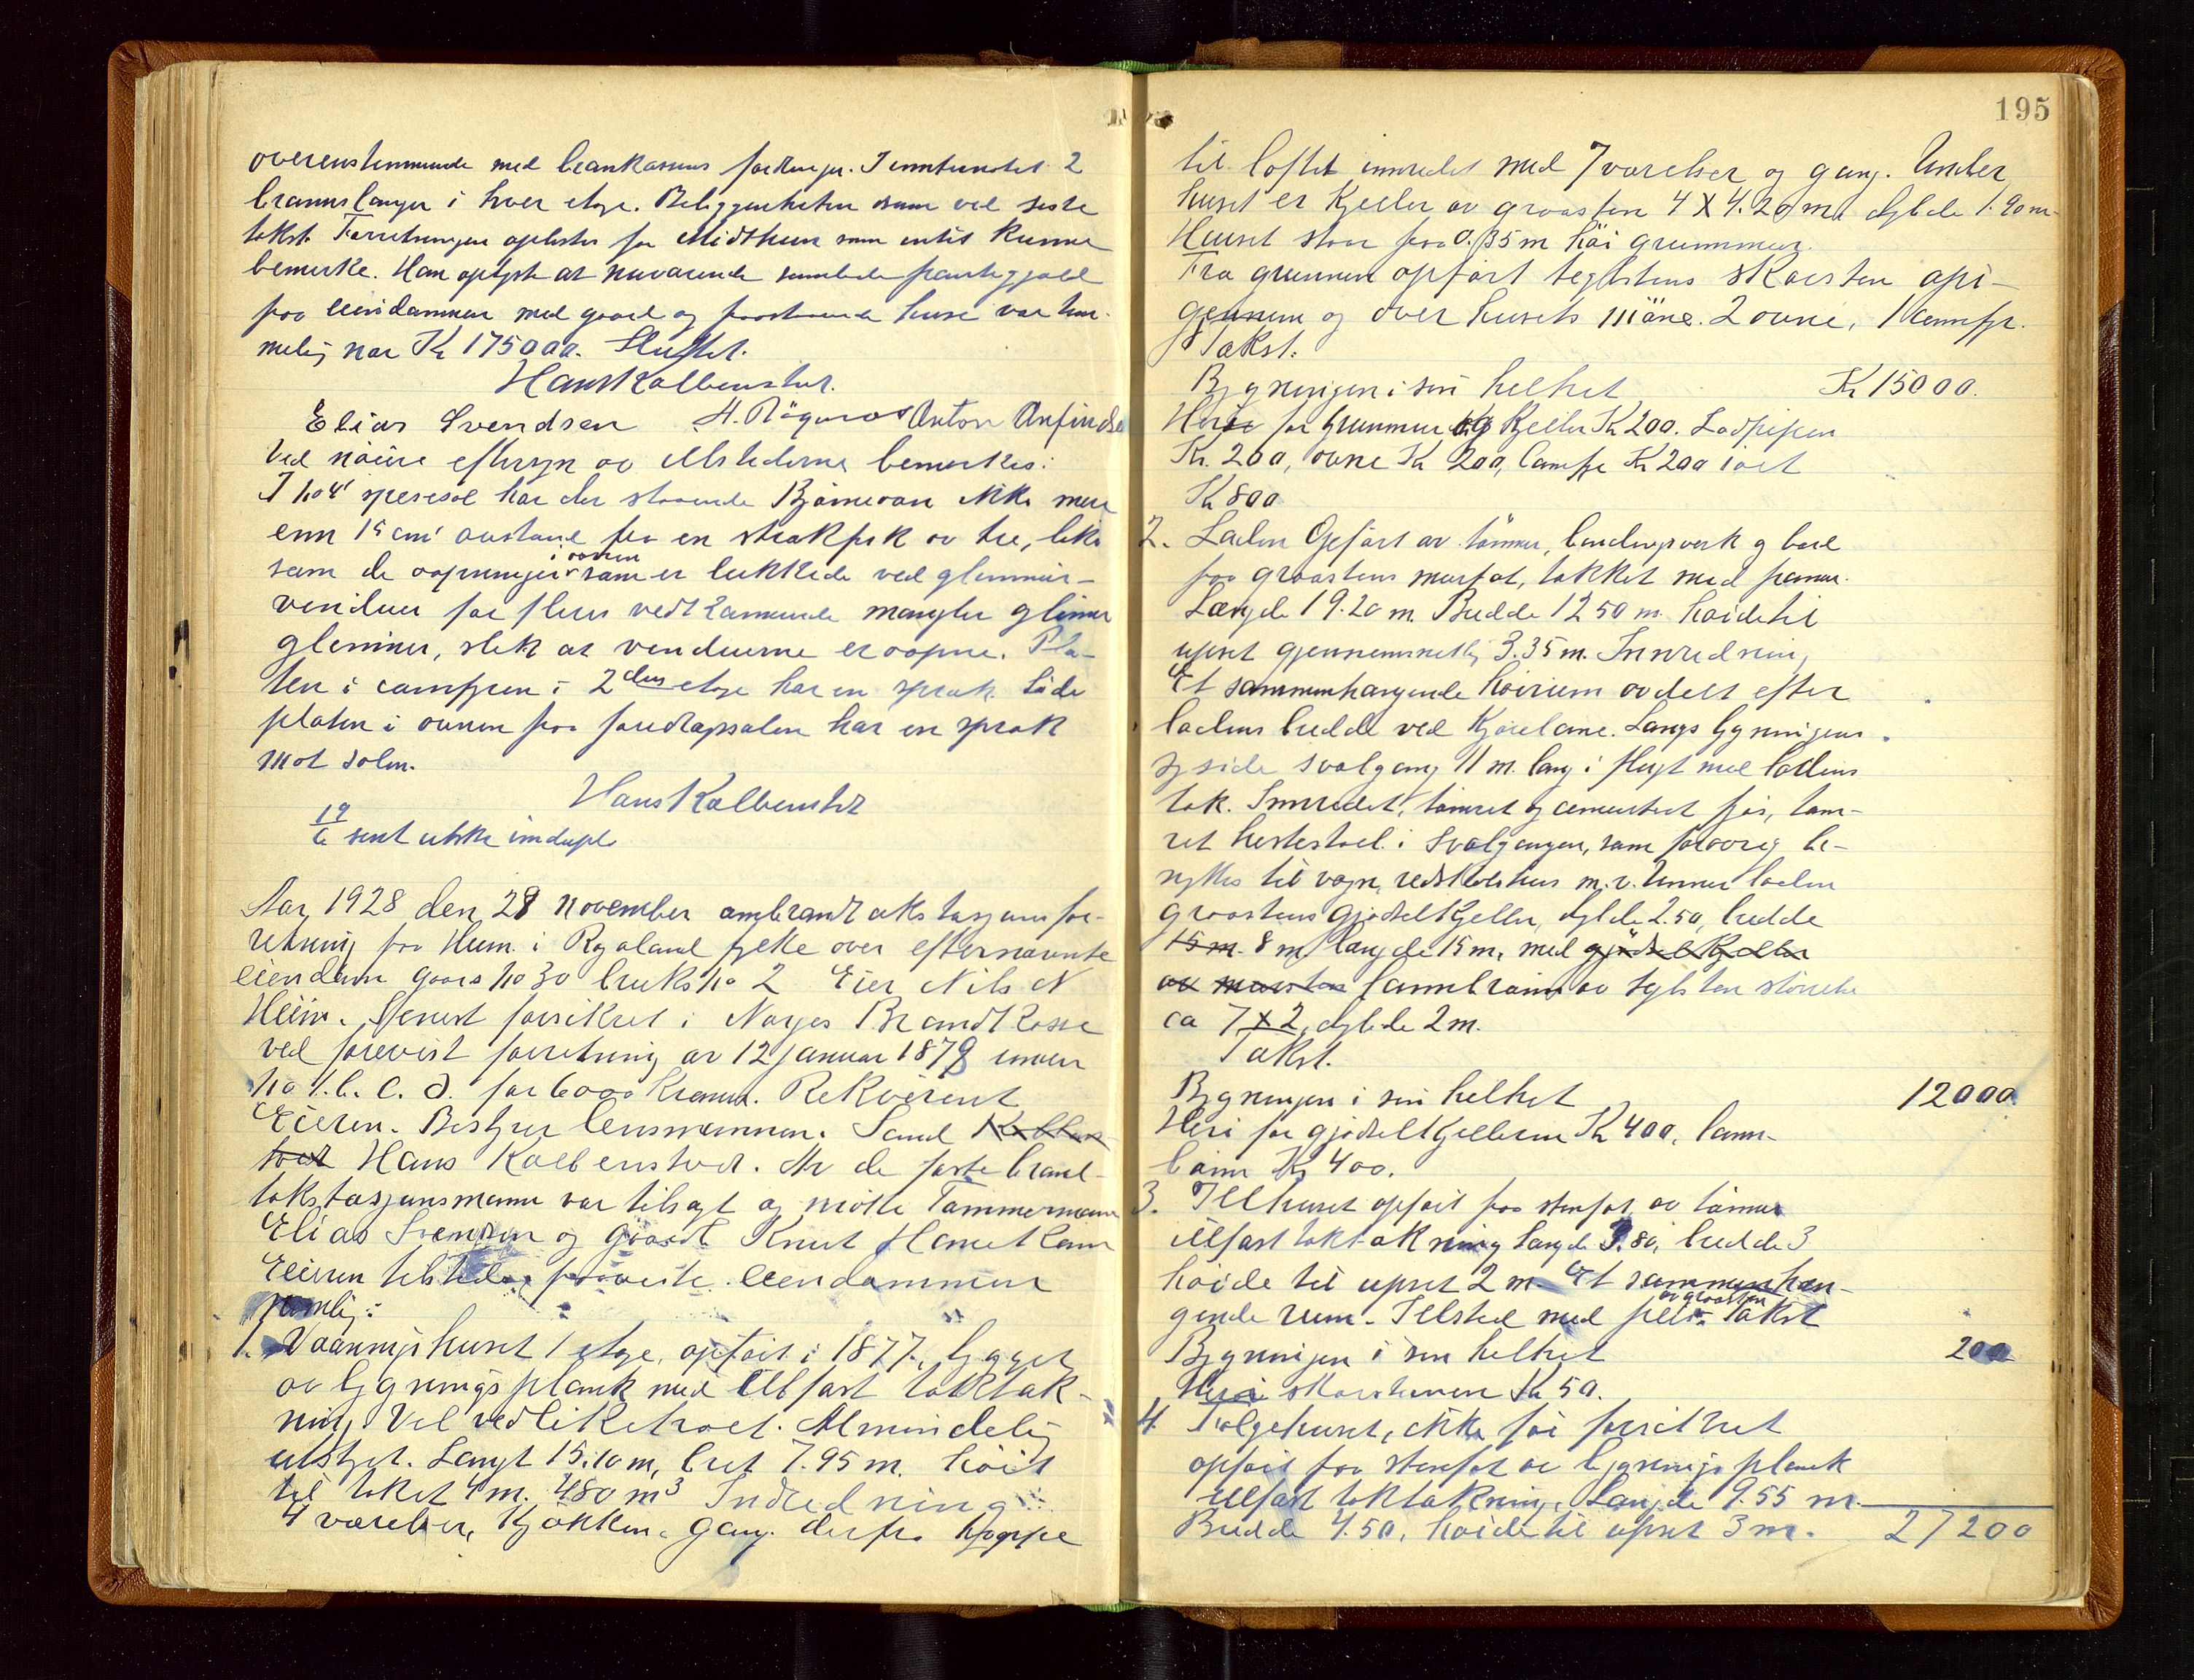 overensstemmende med brankassens fordringer. I emnhundet 2
brannslanger i hver etage. Beliggenheten som ved siste
takst. Forretningen oplestes for Midthun som intit kunne
bemerke. Han oplyste at nuværende samlede pantegjæld
paa eiendommen med gaard og paastaaende huse var him-
melig nær Kr 175000. Sluttet.
Hans Kolbenstvt.
Elias Svendsen A. Rögenes Anton Anfinds
Ved nöiere eftersyn av ilstederne bemerkes:
I no 4 spisesal har der staaende Björneovn ikke mere
enn 15 cm avstand fra en strækfisk av tre, like
som de aapninger i ovnen som er lukkede ved glimmer-
vinduer for flere vedkommende mangler glimer
glimmer, slik at vinduerne er aapne. Pla-
ten i camfyren i 2den etage har en spræk. Side
platen i ovnen paa foredragssalen har en spræk
mot solen.
Hans Kolbenstvt
19/6 sent utskr in duplo
Aar 1928 den 28 november ambrandtakstasjonsfor-
retning paa Heim i Rogaland fylke over efternævnte
eiendom gaards no 30 bruks no 2 Eier Nils N
Heim. Senest forsikret i Norges Brandkasse
ved forevist forretning av 12 januar 1878 under
no 1. b. c. d. for 6000 kroner. Rekvirent
Eieren. Bestyrer lensmannen. Sand Kolben
tvet Hans Kolbenstvet. Av de faste brand-
takstasjonsmenn var tilsagt og mötte Tömmermann
Elias Svendsen og gaardbr Knut Hameland
Eieren tilstede, paaviste eiendommen
nemlig:
1. Vaaningshuset 1 etage, opfört i 1877, bygget
av bygningsplank med ildfast taktæk-
ning. Vel vedlikeholdt. Almindelig
utstyr. Langt 15.10 m, bret 7.95 m. höit
til taket 4 m. 480 m³ Indredning:
4 værelser, kjökken, gang. derfra trappe
195
til loftet innredet med 7 værelser og gang. Under
huset er kjeller av graasten 4 X 4.20 m. dybde 1.90 m.
Huset staar paa 0.35 m höi grunnmur.
Fra grunnen opfört teglstens skorsten opi-
gjennem og over husets möne. 2 ovne, 1 camfyr.
Takst.
Bygningen i sin helhet Kr 15000.
Herav for grunnmur og kjeller Kr 200. Lodpipen
Kr. 200, ovne Kr 200, camfyr Kr 200 ialt
Kr 800
2. Laden Opfört av tömmer, bindingsverk og bord
paa graastens murfot, tækket med panner.
Længde 19.20 m. Bredde 12 50 m. höide til
upset gjennemsnitlig 3.35 m. Innredning,
Et sammenhængende höirum avdelt efter
ladens bredde ved kjörelane. Langs bygningens
ø side svalgang 11 m. lang i flugt med ladens
tak. Innredet, tömret og cementert fjös, töm-
ret hestestal i svalgangen, som forövrig be-
nyttes til vogn, redskabshus m. v. Under laden
graastens gjödselkjeller, dybde 2.50, bredde
15 m. 8 m længde 15 m, med gjödselkjeller
av mursten lannbrönn av teglsten störrelse
ca 7 X 2, dybde 2 m.
Takst.
Bygningen i sin helhet 12000
Heri for gjödselkjelleren Kr 400, lann-
brönn Kr 400.
3. Ildhuset opfört paa stenfot av tömmer
ildfast taktækning længde 3.80, bredde 3
höide til upset 2 m. Et sammenhæn-
gende rum. Ilsted med pipe av graasten Takst
Bygningen i sin helhet 200
Heri skorstenen Kr 50.
4. Følgehuset, ikke för forsikret
opfört paa stenfot av bygningsplank
ildfast taktækning. Længde 9.55 m.
Bredde 4.50, höide til upset 3 m. 27200